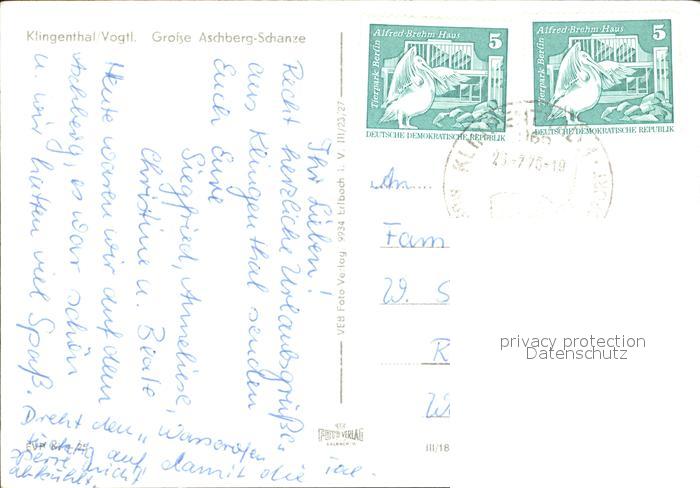 Klingenthal/Vogtl. Große Aschberg-Schanze
Ihr Lieben!
Recht herzliche Urlaubsgrüße
aus Klingenthal senden
Euch Eure
Siegfried, Anneliese,
Christine u. Beate
Heute waren wir auf dem
Aschberg, es war schön
u. wir hatten viel Spaß.
Dreht den "Wasserofen
auf, damit die
nicht
abkühlt.
VEB Foto-Verlag 9934 Erlbach i. V. III/23/27
FOTO VERLAG
ERLBACH
III/18
Tierpark Berlin
Alfred-Brehm-Haus
5
DEUTSCHE DEMOKRATISCHE REPUBLIK
Tierpark Berlin
Alfred-Brehm-Haus
5
DEUTSCHE DEMOKRATISCHE REPUBLIK
An
Fam
W. S
R
W
privacy protection
Datenschutz